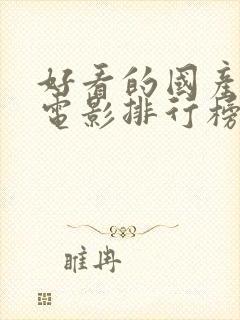 好看的國產
電影排行榜
睢冉